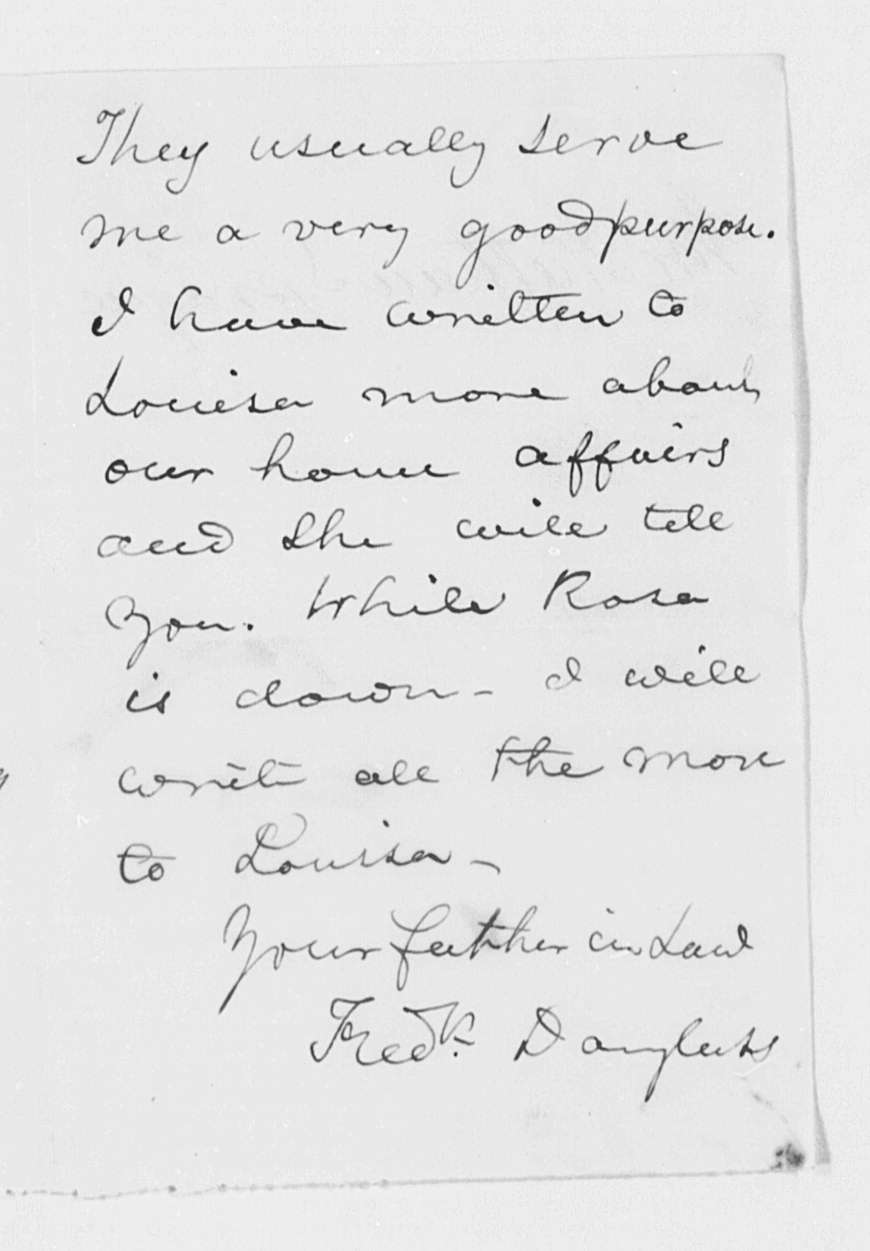 They usually serve
me a very good purpose.
I have written to
Louisa more about
our home affairs
and she will tell
you. While Rosa
is down - I will
write all the more
to Louisa -
Your father in Law
Fredk. Douglass